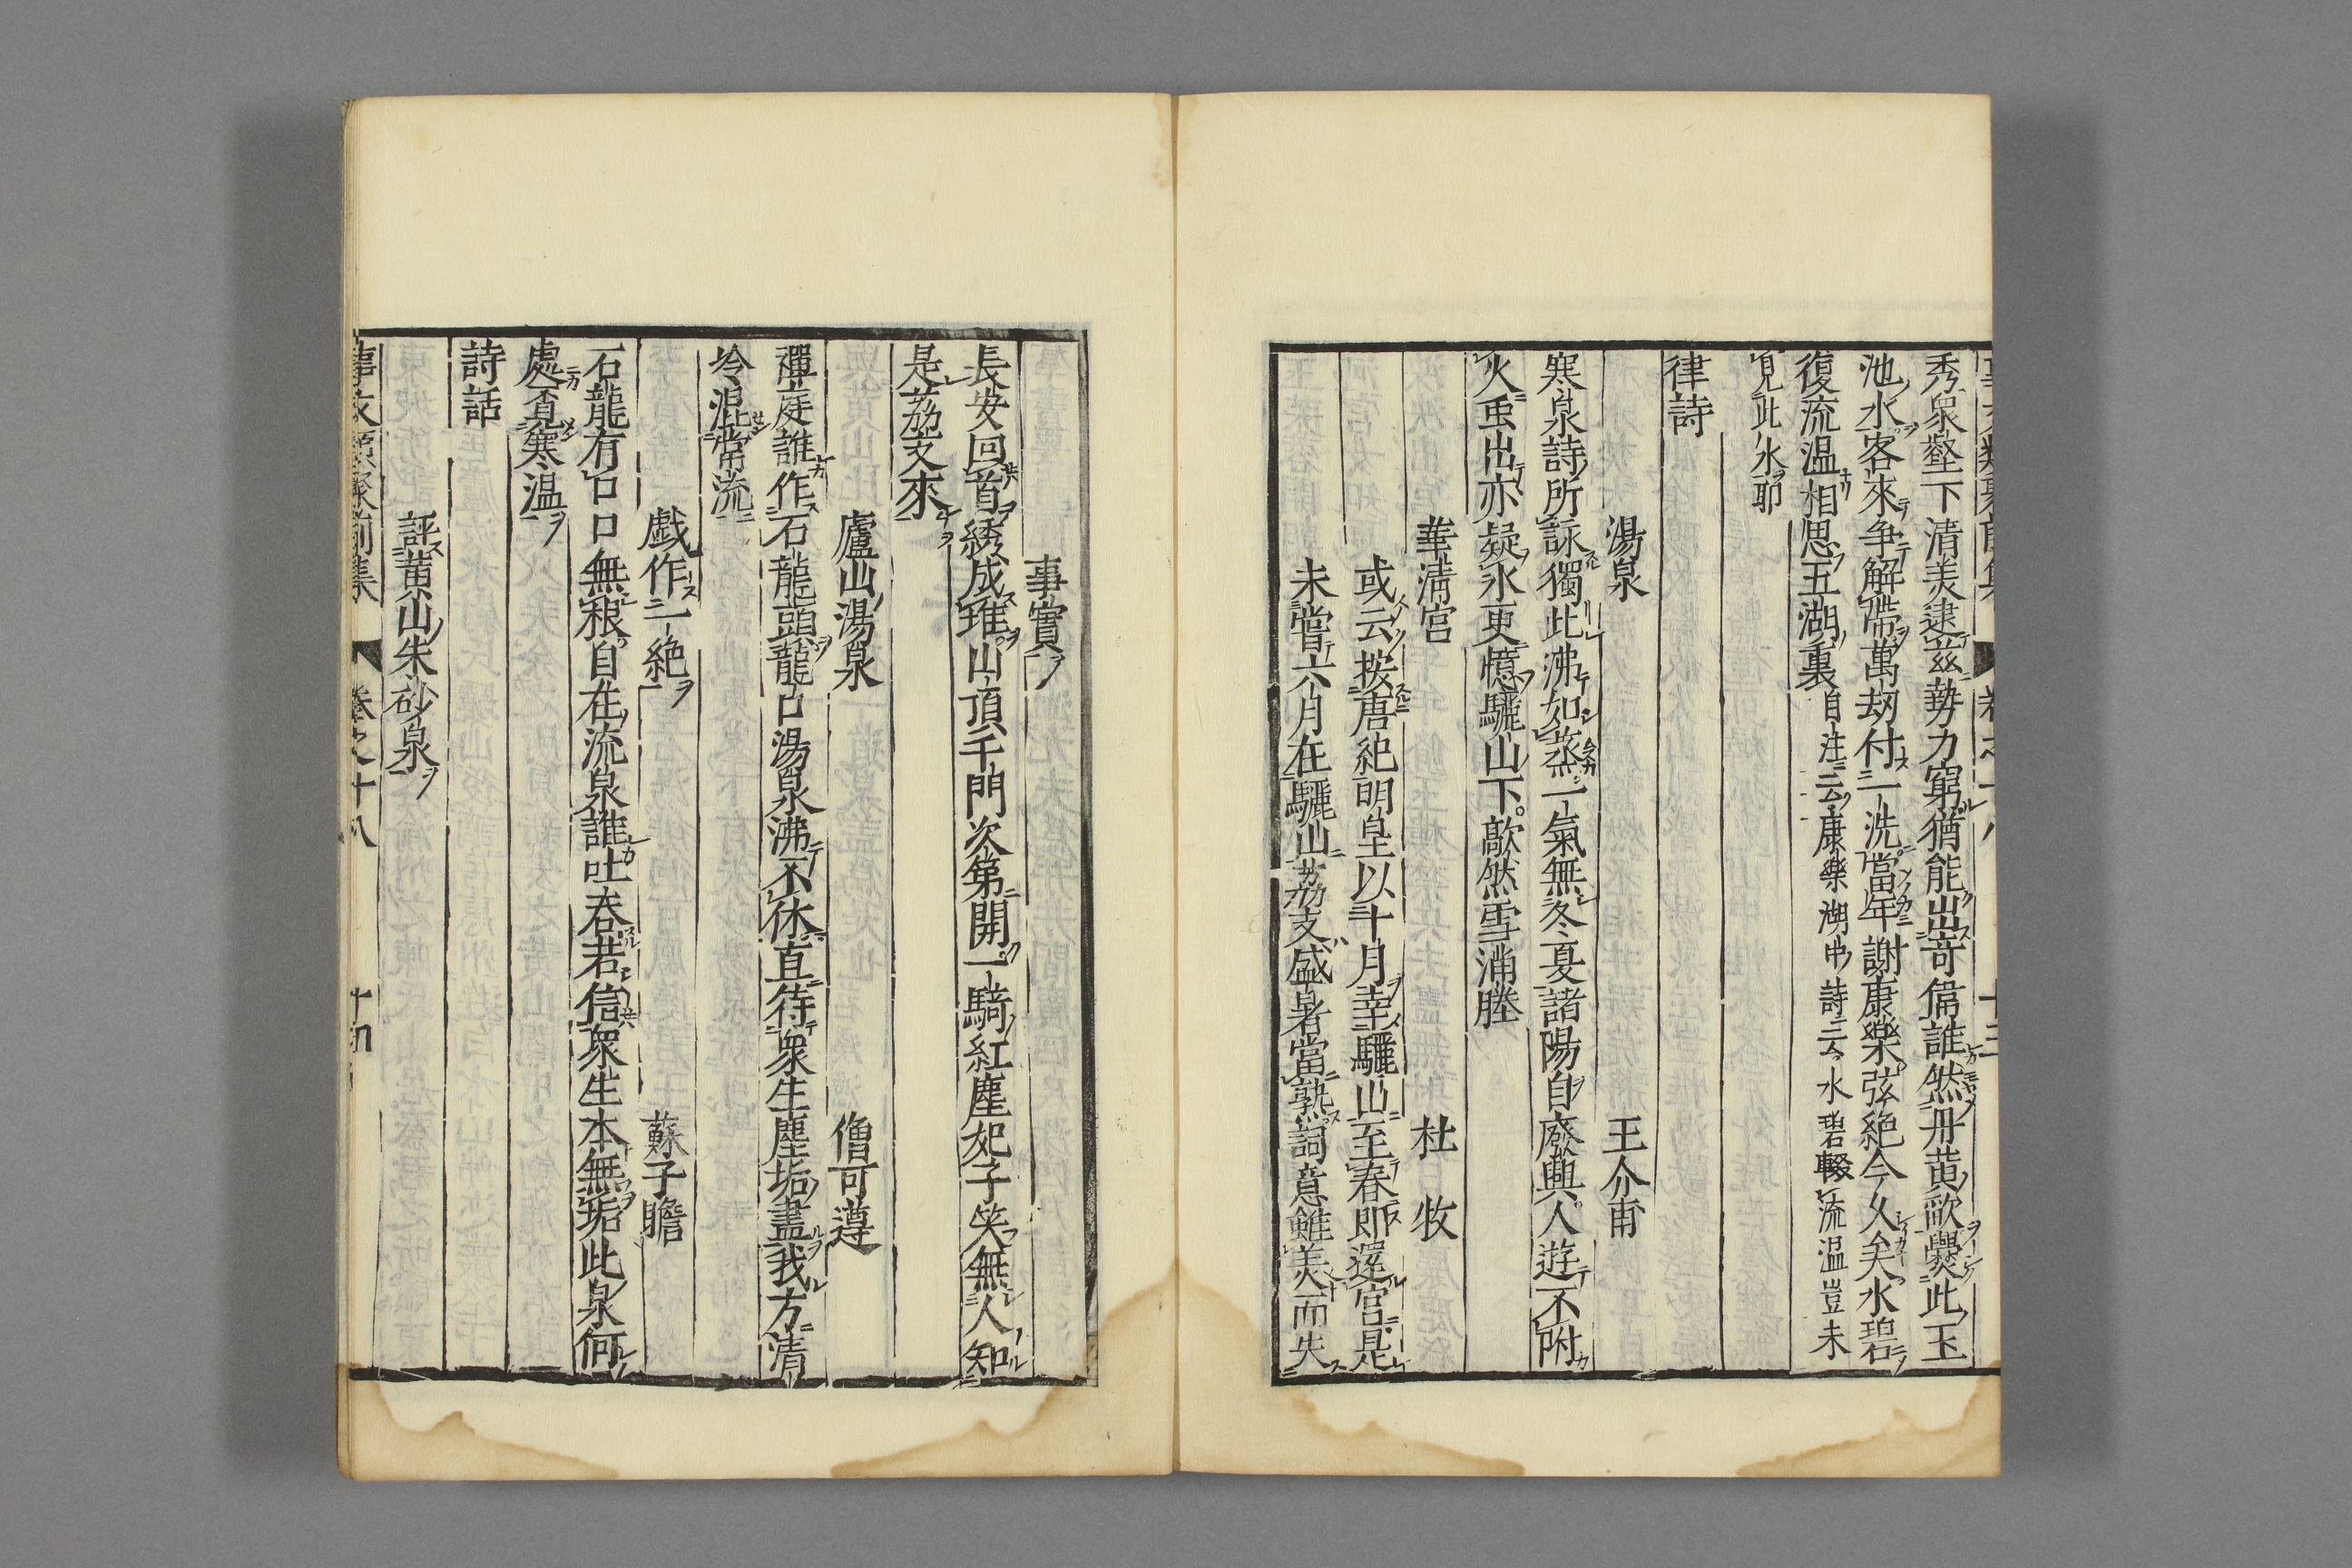 秀衆壑下清美逮茲勢力窮猶能出奇偉誰然丹黄歃爨此玉
池水客來争解帶萬刼付一洗當年謝康樂弦絶今久矣水碧
復流温相思五湖裏自注云康樂湖中詩云水碧輟流温豈未
見此水耶
律詩
湯泉 王介甫
寒泉詩所詠獨此沸如蒸一氣無冬夏諸陽自廢興人遊不附
火虫出亦疑氷更憶驪山下歊然雪滿塍
華清宮 杜牧
或云按唐紀明皇以十月幸驪山至春即還宮是
未嘗六月在驪山荔支盛暑當熟詞意雖美而失
事實
長安回首綉成堆山頂千門次第開一騎紅塵妃子笑無人知
是荔支來
廬山湯泉 僧可遵
禪庭誰作石龍頭龍口湯泉沸不休直待衆生塵垢盡我方清
冷混常流
戯作一絶 蘇子瞻
石龍有口口無根自在流泉誰吐呑若信衆生本無垢此泉何
處覔寒温
詩話
評黄山朱砂泉
事文類聚前集 卷之十八 十四